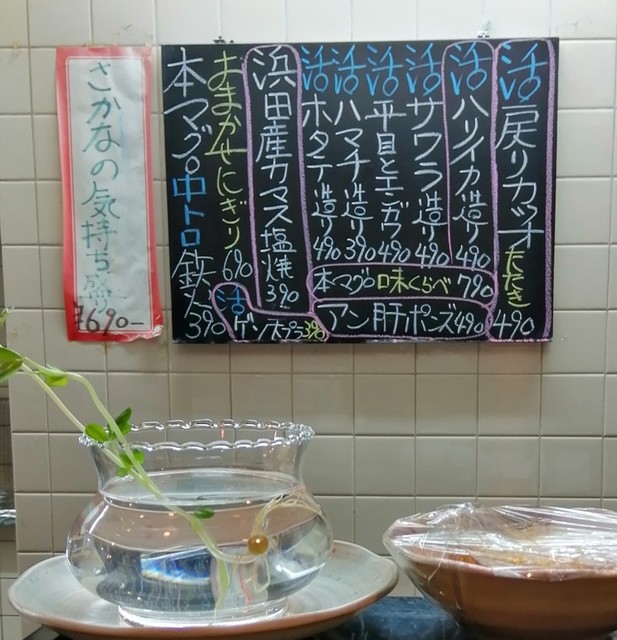 活 戻りカツオ たたき 490
活 ハリイカ造り 490
活 サワラ造り 490
活 平目とエンガワ 490
活 ハマチ造り 390
活 ホタテ造り 490
本マグロ味くらべ 790
アン肝ポーズ 490
浜田産カマス塩焼 390
おまかせにぎり 690
活ゲソ天プラ 390
本マグロ中トロ鉄火 390
さかなの気持ち盛
¥690−